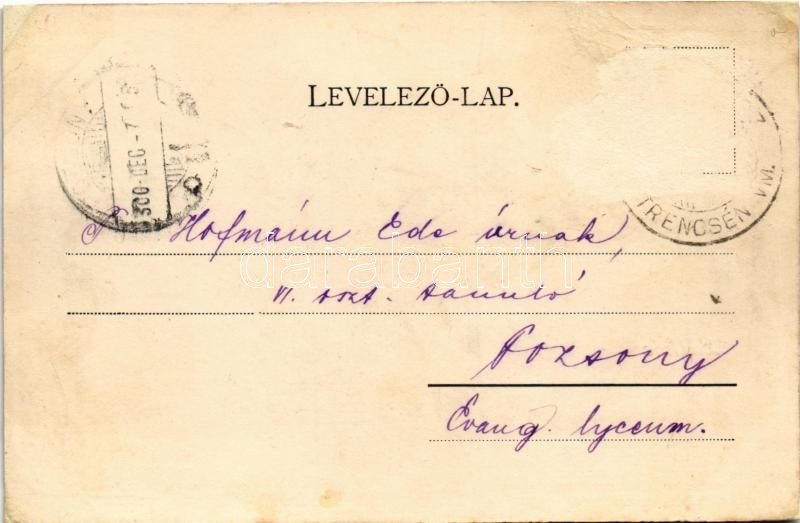 LEVELEZÖ-LAP.
900 DEC
TRENCSÉN VM.
T. Hofmánn Ede úrnak,
VI. oszt. tanuló
Pozsony
Evang. lyceum.
darabanth